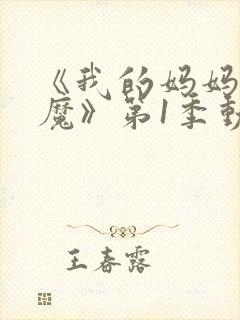 《我的妈妈
魔》第1季動
王春露